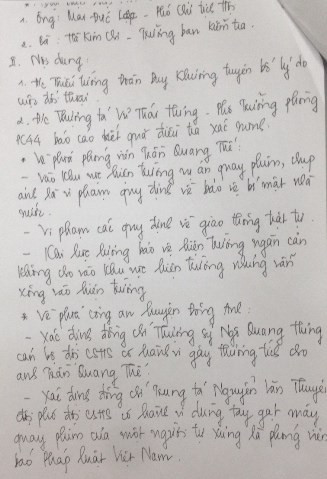 1. Ông: Mai Đức Lập - Phó Chủ tịch TT
2. Bà: Hà Kim Chi - Trưởng ban kiểm tra.
II. Nội dung:
1. Đ/c Thiếu tướng Đoàn Duy Khương tuyên bố lý do
cuộc đối thoại.
2. Đ/c Thượng tá Vũ Thái Hưng - Phó Trưởng phòng
PC44 báo cáo kết quả điều tra xác minh:
* Về phía phóng viên Trần Quang Thế:
- Vào khu vực hiện trường vụ án quay phim, chụp
ảnh là vi phạm quy định về bảo vệ bí mật nhà
nước.
- Vi phạm các quy định về giao thông trật tự.
- Khi lực lượng bảo vệ hiện trường ngăn cản
không cho vào khu vực hiện trường nhưng vẫn
xông vào hiện trường.
* Về phía công an huyện Đông Anh:
- Xác định đồng chí Thượng sỹ Ngô Quang Hưng
cán bộ đội CSHS có hành vi gây thương tích cho
anh Trần Quang Thế.
- Xác định đồng chí Trung tá Nguyễn Văn Thuyên
đội phó đội CSHS có hành vi dùng tay gạt máy
quay phim của một người tự xưng là phóng viên
báo Pháp luật Việt Nam.